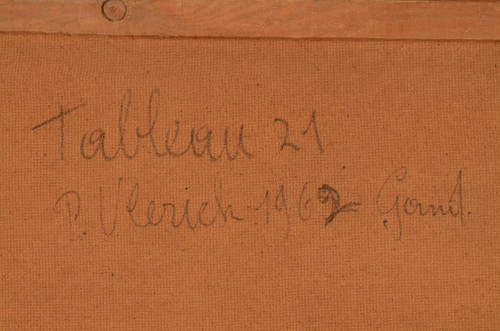 Tableau 21
P. Vlerick 1962 Gand.